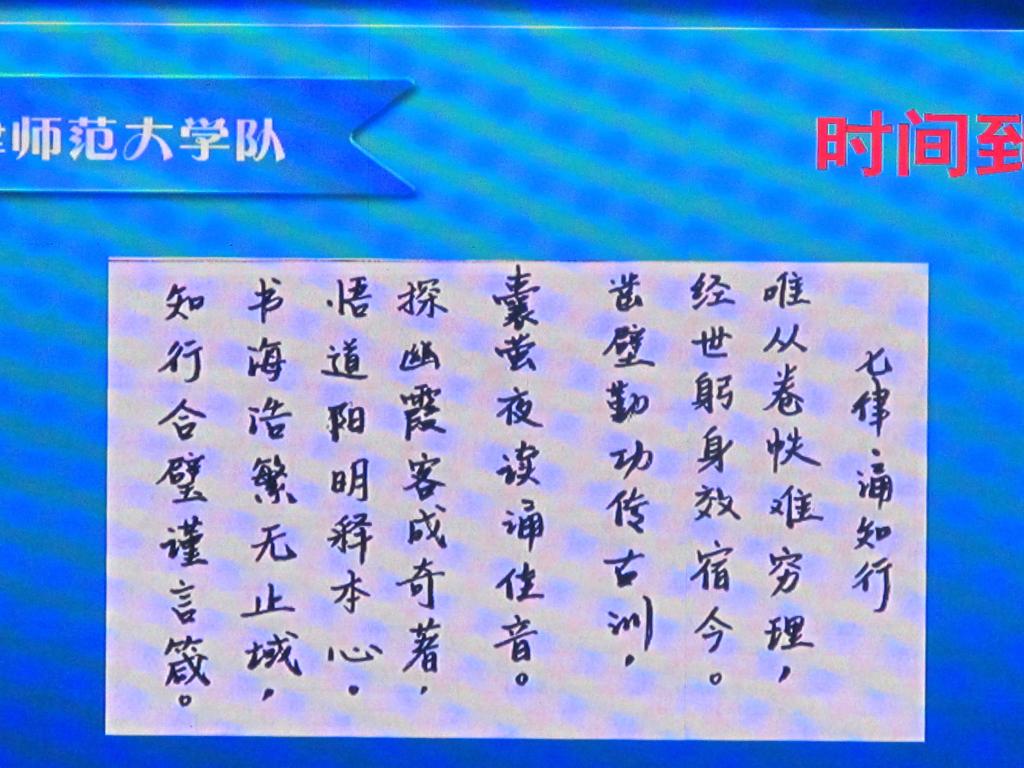 师范大学队
时间到
七律·诵知行
唯从卷帙难穷理，
经世躬身效宿今。
凿壁勤功传古训，
囊萤夜读诵佳音。
探幽霞客成奇著，
悟道阳明释本心。
书海浩繁无止域，
知行合璧谨言箴。